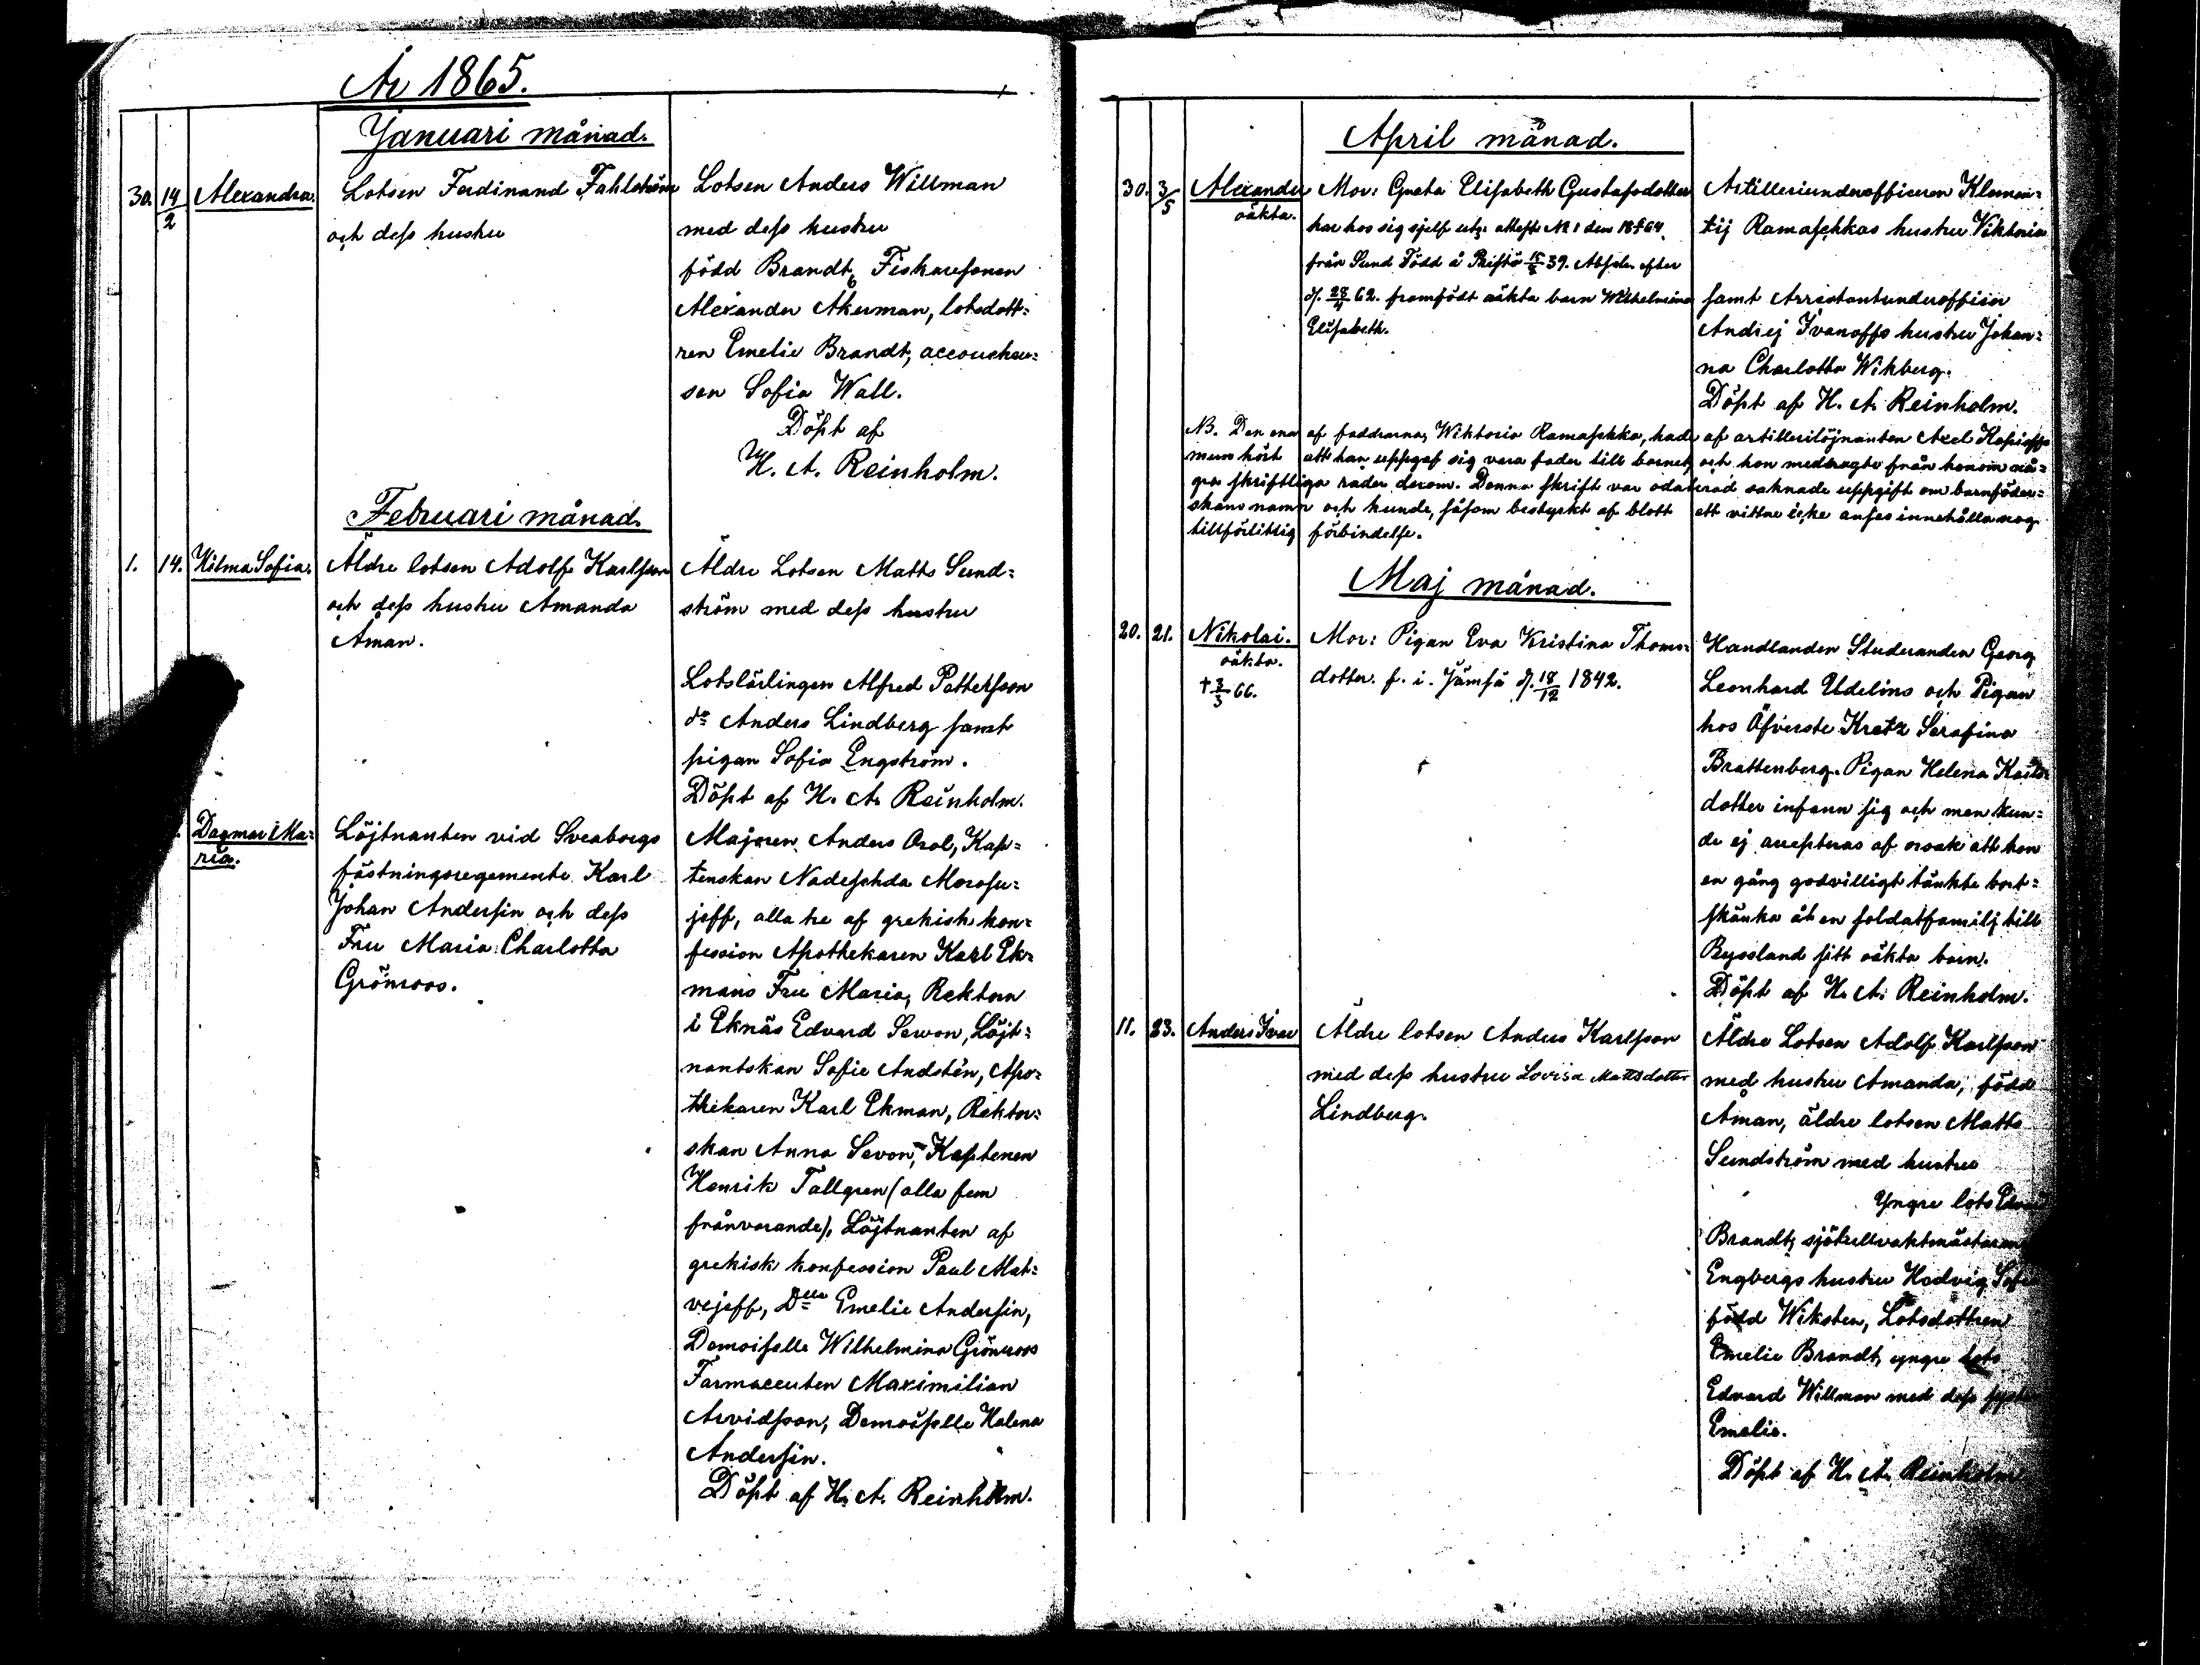 År 1865.
Januari månad.
30. 14/2 Alexandra. Lotsen Ferdinand Fahlström
och dess hustru
Lotsen Anders Willman
med dess hustru
född Brandt, Fiskaresonen
Alexander Åkerman, lotsdott=
ren Emelie Brandt, accoucheu=
sen Sofia Wall.
Döpt af
H. A. Reinholm.
Februari månad.
1. 14. Hilma Sofia. Äldre lotsen Adolf Karlsson
och dess hustru Amanda
Åman.
Äldre Lotsen Matts Sund=
ström med dess hustru
Lotslärlingen Alfred Pettersson
do Anders Lindberg samt
pigan Sofia Engström.
Döpt af H. A. Reinholm.
Dagmar Ma=
ria.
Löjtnanten vid Sveaborgs
fästningsregemente Karl
Johan Andersin och dess
Fru Maria Charlotta
Grönroos.
Majoren Anders Orol, Kap=
tenskan Nadeschda Morosu=
jeff, alla tre af grekisk kon=
fession Apothekaren Karl Ek=
mans Fru Maria, Rektorn
i Eknäs Edvard Sewon, Löjt=
nantskan Sofie Andstén, Apo=
thekaren Karl Ekman, Rektor=
skan Anna Sevon, Kaptenen
Henrik Tallgren (alla fem
frånvarande), Löjtnanten af
grekisk konfession Paul Mat=
vejeff, Dlle Emelie Andersin,
Demoiselle Wilhelmina Grönroos
Farmaceuten Maximilian
Arvidsson, Demoiselle Helena
Andersin.
Döpt af H. A. Reinholm.
April månad.
30. 3/5 Alexander
oäkta.
Mor: Greta Elisabeth Gustafsdotter
har hos sig sjelf attest No 1 den 18 64
från Sund Född å 39. efter
d. 28/4 62. framfödt oäkta barn Wilhelmina
Elisabeth.
Artilleriunderofficeren Klemen=
tij Ramaschkas hustru Viktoria
samt Arrestantunderofficer
Andrej Ivanoffs hustru Johan=
na Charlotta Wikberg.
Döpt af H. A. Reinholm.
NB. Den ena af faddrarna, Wiktoria Ramaschka, hade af artillerilöjnanten Axel
mun hört att han uppgaf sig vara fader till barnet, och hon medbragte från honom nå=
gra skriftliga rader derom. Denna skrift var odaterad saknade uppgift om barnföder=
skans namn och kunde, såsom bestyrkt af blott ett vittne icke anses innehålla nog
tillförlitlig förbindelse.
Maj månad.
20. 21. Nikolai.
oäkta.
† 3/3 66.
Mor: Pigan Eva Kristina Thoms=
dotter. f. i. Jämsä d. 18/12 1842.
Handlanden Studeranden Georg
Leonhard Udelius och Pigan
hos Öfverste Kretz Serafina
Brattenberg. Pigan Helena
dotter infann sig och men kun=
de ej accepteras af orsak att hon
en gång godvilligt tänkte bort=
skänka åt en soldatfamilj till
Ryssland sitt oäkta barn.
Döpt af H. A. Reinholm.
11. 23. Anders Ivar Äldre lotsen Anders Karlsson
med dess hustru Lovisa Mattsdotter
Lindberg.
Äldre Lotsen Adolf Karlsson
med hustru Amanda, född
Åman, äldre lotsen Matts
Sundström med hustru
Yngre lots
Brandt, sjötullvaktmästaren
Engbergs hustru Hedvig Sofia
född Wiksten, Lotsdottren
Emelie Brandt, yngre lots
Edvard Willman med dess syster
Emelie.
Döpt af H. A. Reinholm